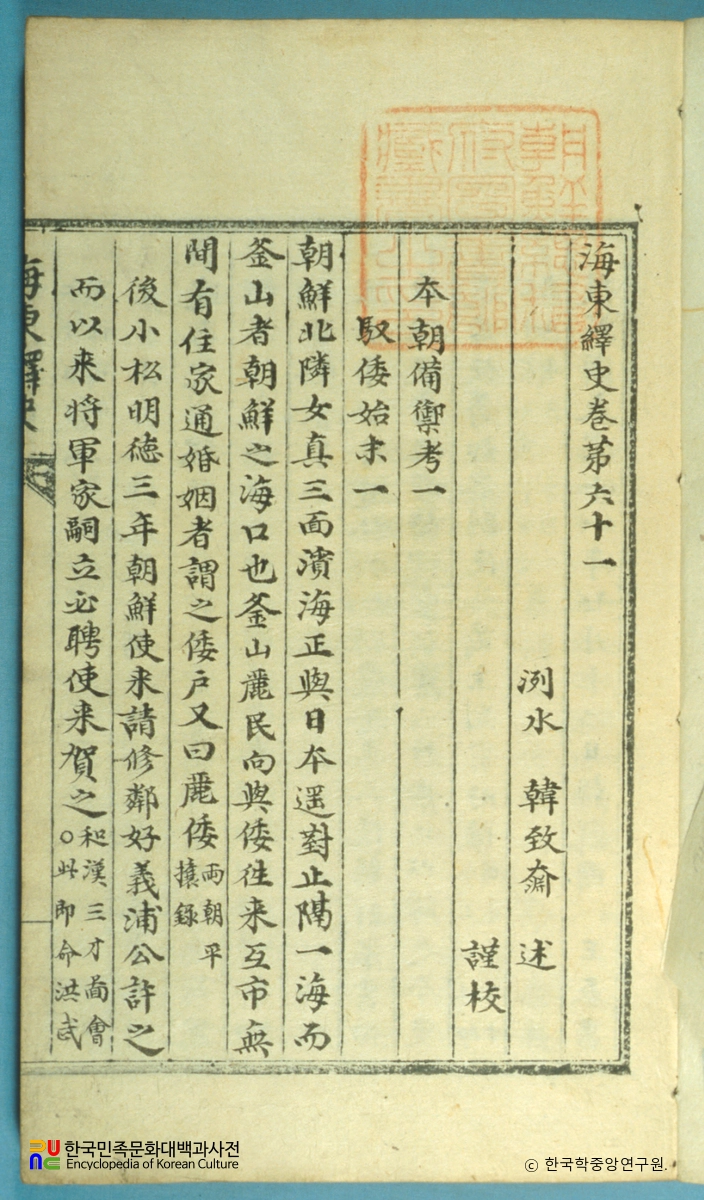 海東繹史卷第六十一
洌水 韓致奫 述
謹校
本朝備禦考一
馭倭始末一
朝鮮北隣女真三面濱海正與日本遥對止隔一海而
釜山者朝鮮之海口也釜山麗民向與倭徃来互市無
間有住家通婚姻者謂之倭戶又曰麗倭 兩朝平
攘錄
後小松明徳三年朝鮮使来請修鄰好義浦公許之
而以来将軍家嗣立必聘使来賀之 和漢三才圖會
○此即命洪武
海東繹史
한국민족문화대백과사전
Encyclopedia of Korean Culture
© 한국학중앙연구원.